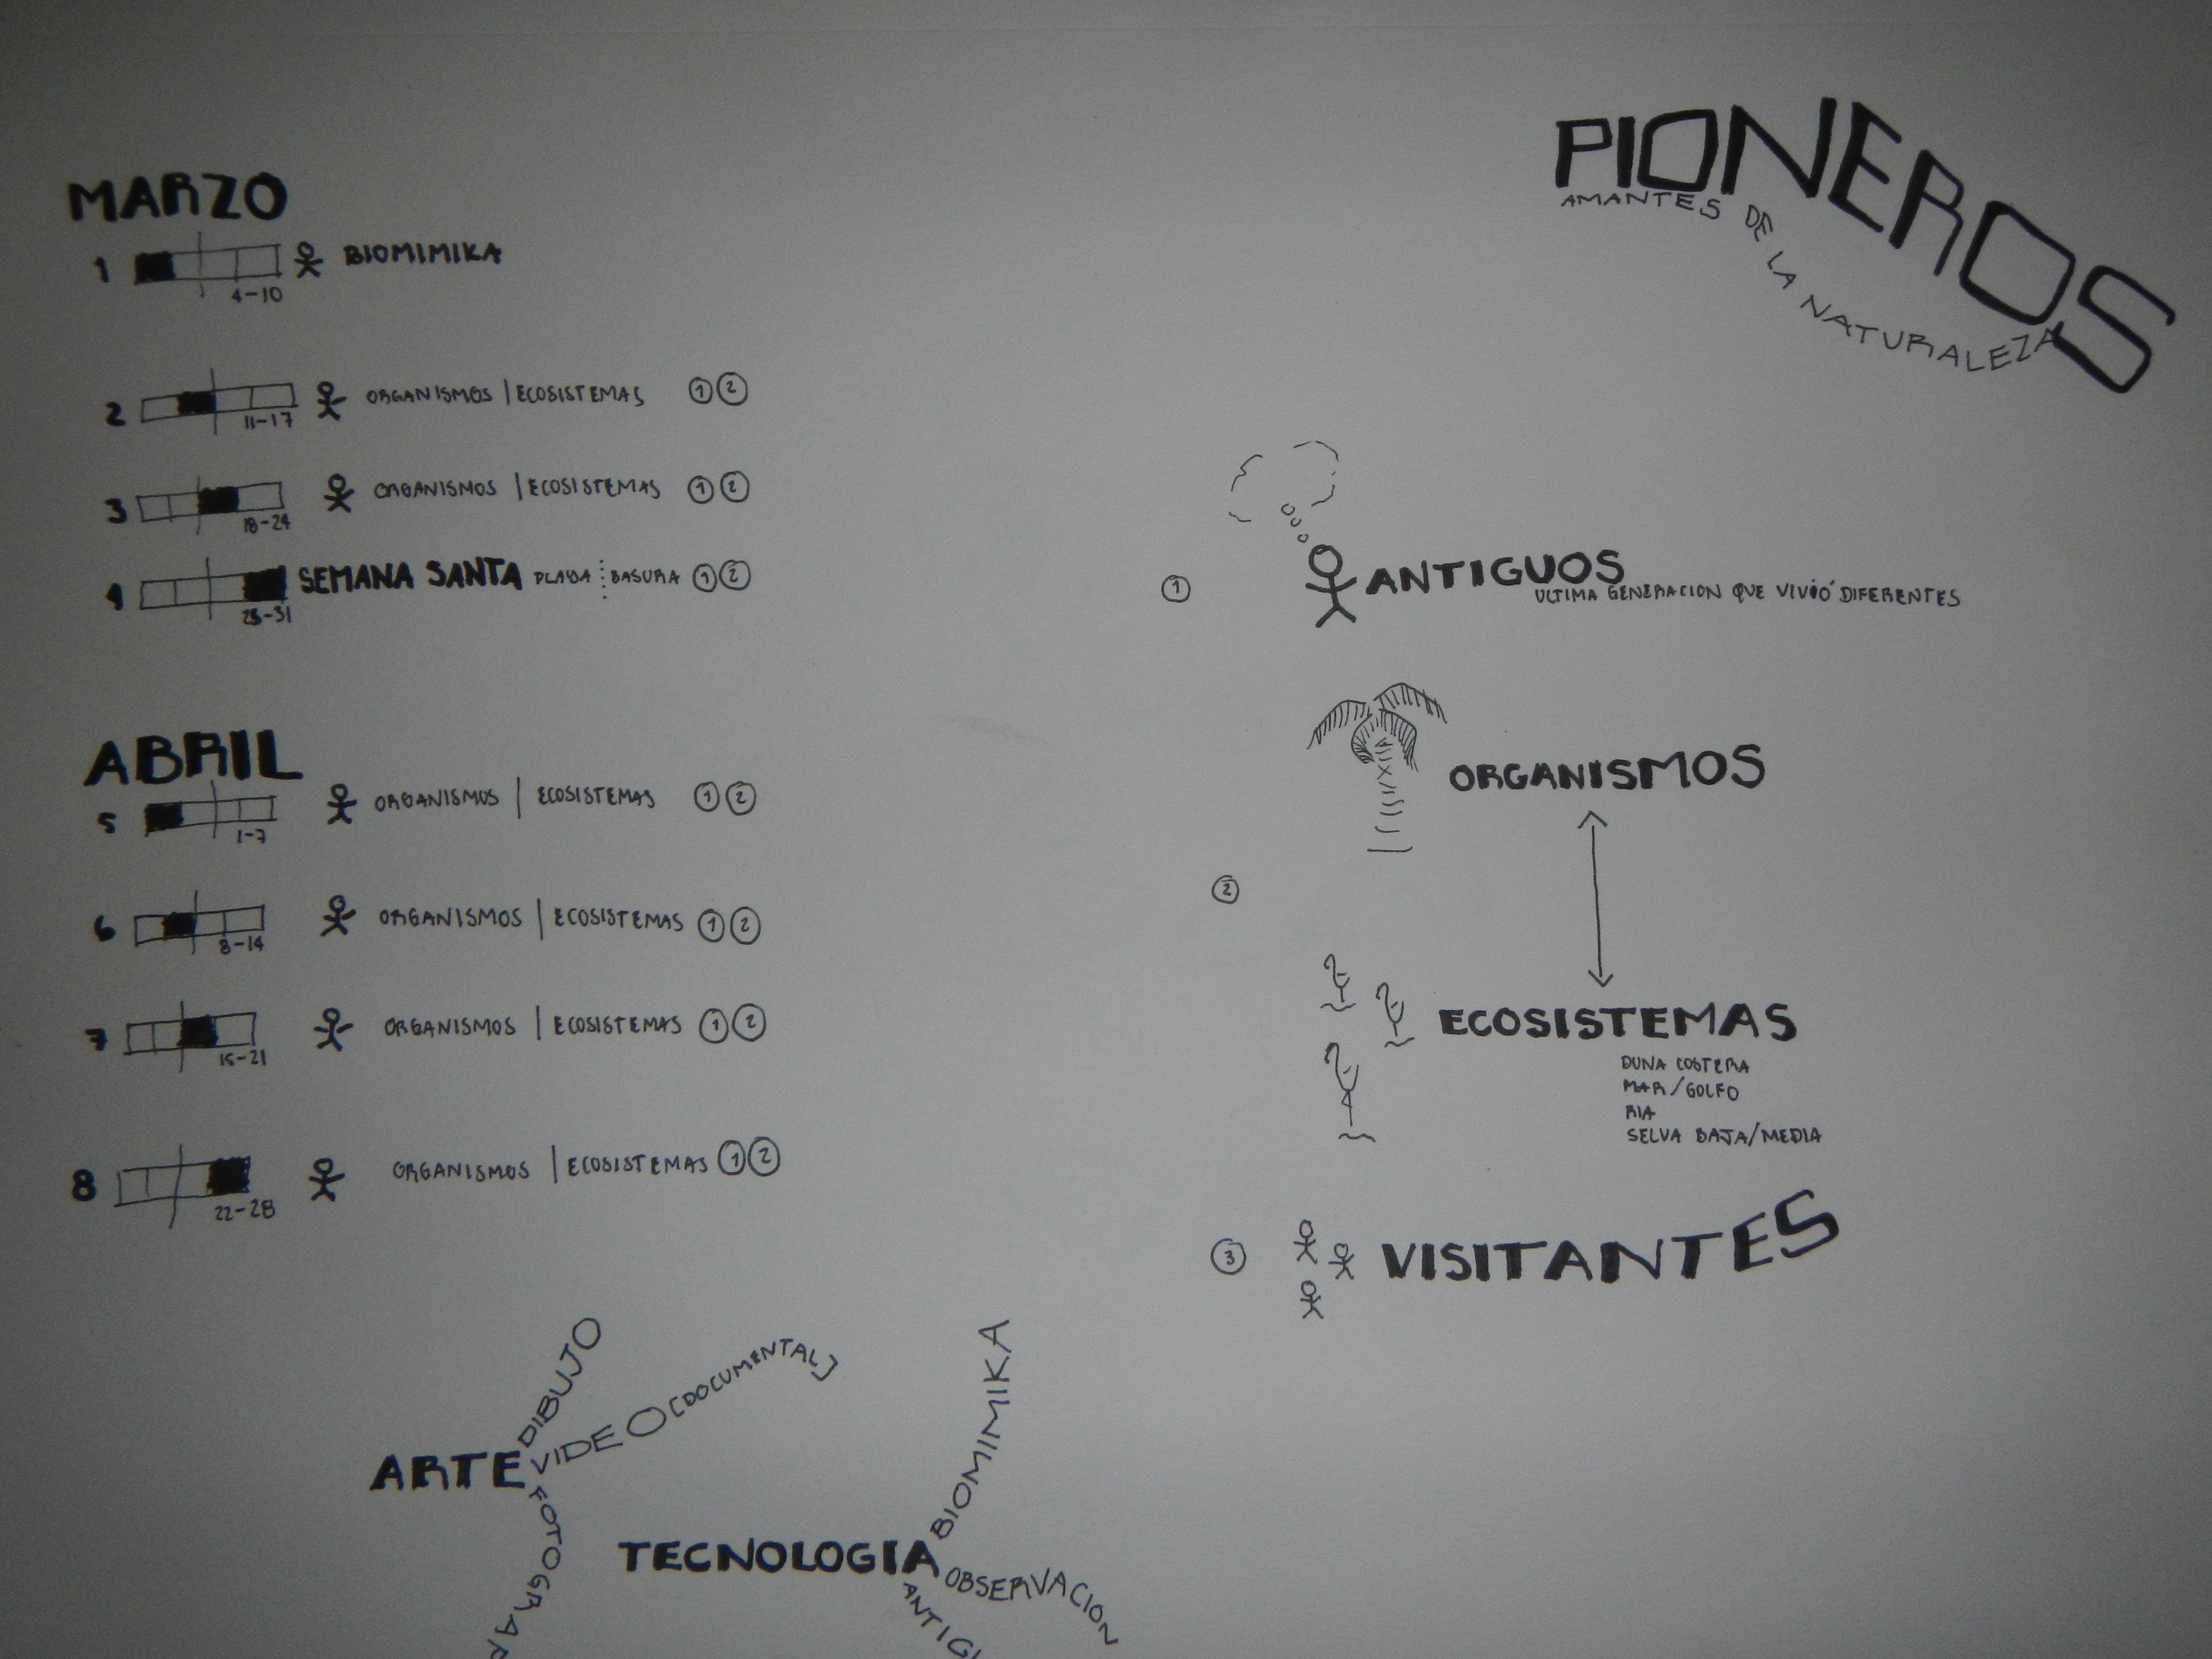 PIONEROS
AMANTES DE LA NATURALEZA
MARZO
1 BIOMIMIKA
4-10
2 ORGANISMOS | ECOSISTEMAS 1 2
11-17
3 ORGANISMOS | ECOSISTEMAS 1 2
18-24
4 SEMANA SANTA PLAYA BASURA 1 2
25-31
ABRIL
5 ORGANISMOS | ECOSISTEMAS 1 2
1-7
6 ORGANISMOS | ECOSISTEMAS 1 2
8-14
7 ORGANISMOS | ECOSISTEMAS 1 2
15-21
8 ORGANISMOS | ECOSISTEMAS 1 2
22-28
1 ANTIGUOS
ULTIMA GENERACION QUE VIVIÓ DIFERENTES
ORGANISMOS
2
ECOSISTEMAS
DUNA COSTERA
MAR/GOLFO
RIA
SELVA BAJA/MEDIA
3 VISITANTES
ARTE
DIBUJO
VIDEO [DOCUMENTAL]
FOTOGRAF
TECNOLOGIA
BIOMIMIKA
OBSERVACION
ANTIG